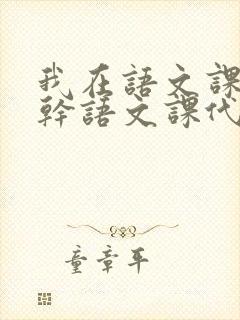 我在語文課
幹語文課代
童章平